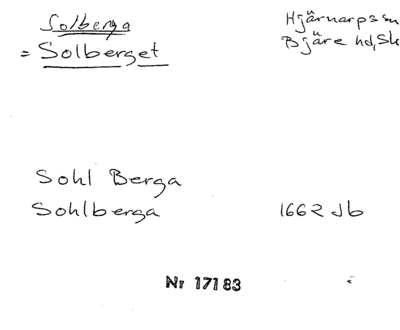 Solberga
= Solberget
Hjärnarps sn
Bjäre hd, Sk
Sohl Berga
Sohlberga 1662 Jb
Nr 17183